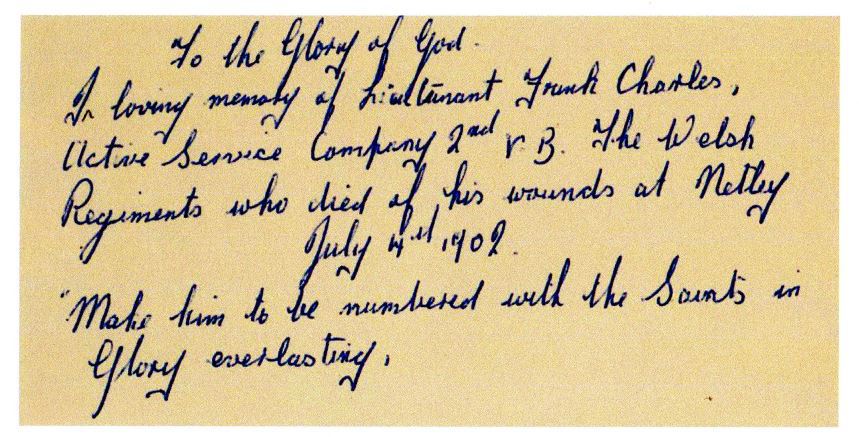 To the Glory of God.
In loving memory of Lieutenant Frank Charles,
Active Service Company 2nd V B. The Welsh
Regiments who died of his wounds at Netley
July 4th 1902.
"Make him to be numbered with the Saints in
Glory everlasting,